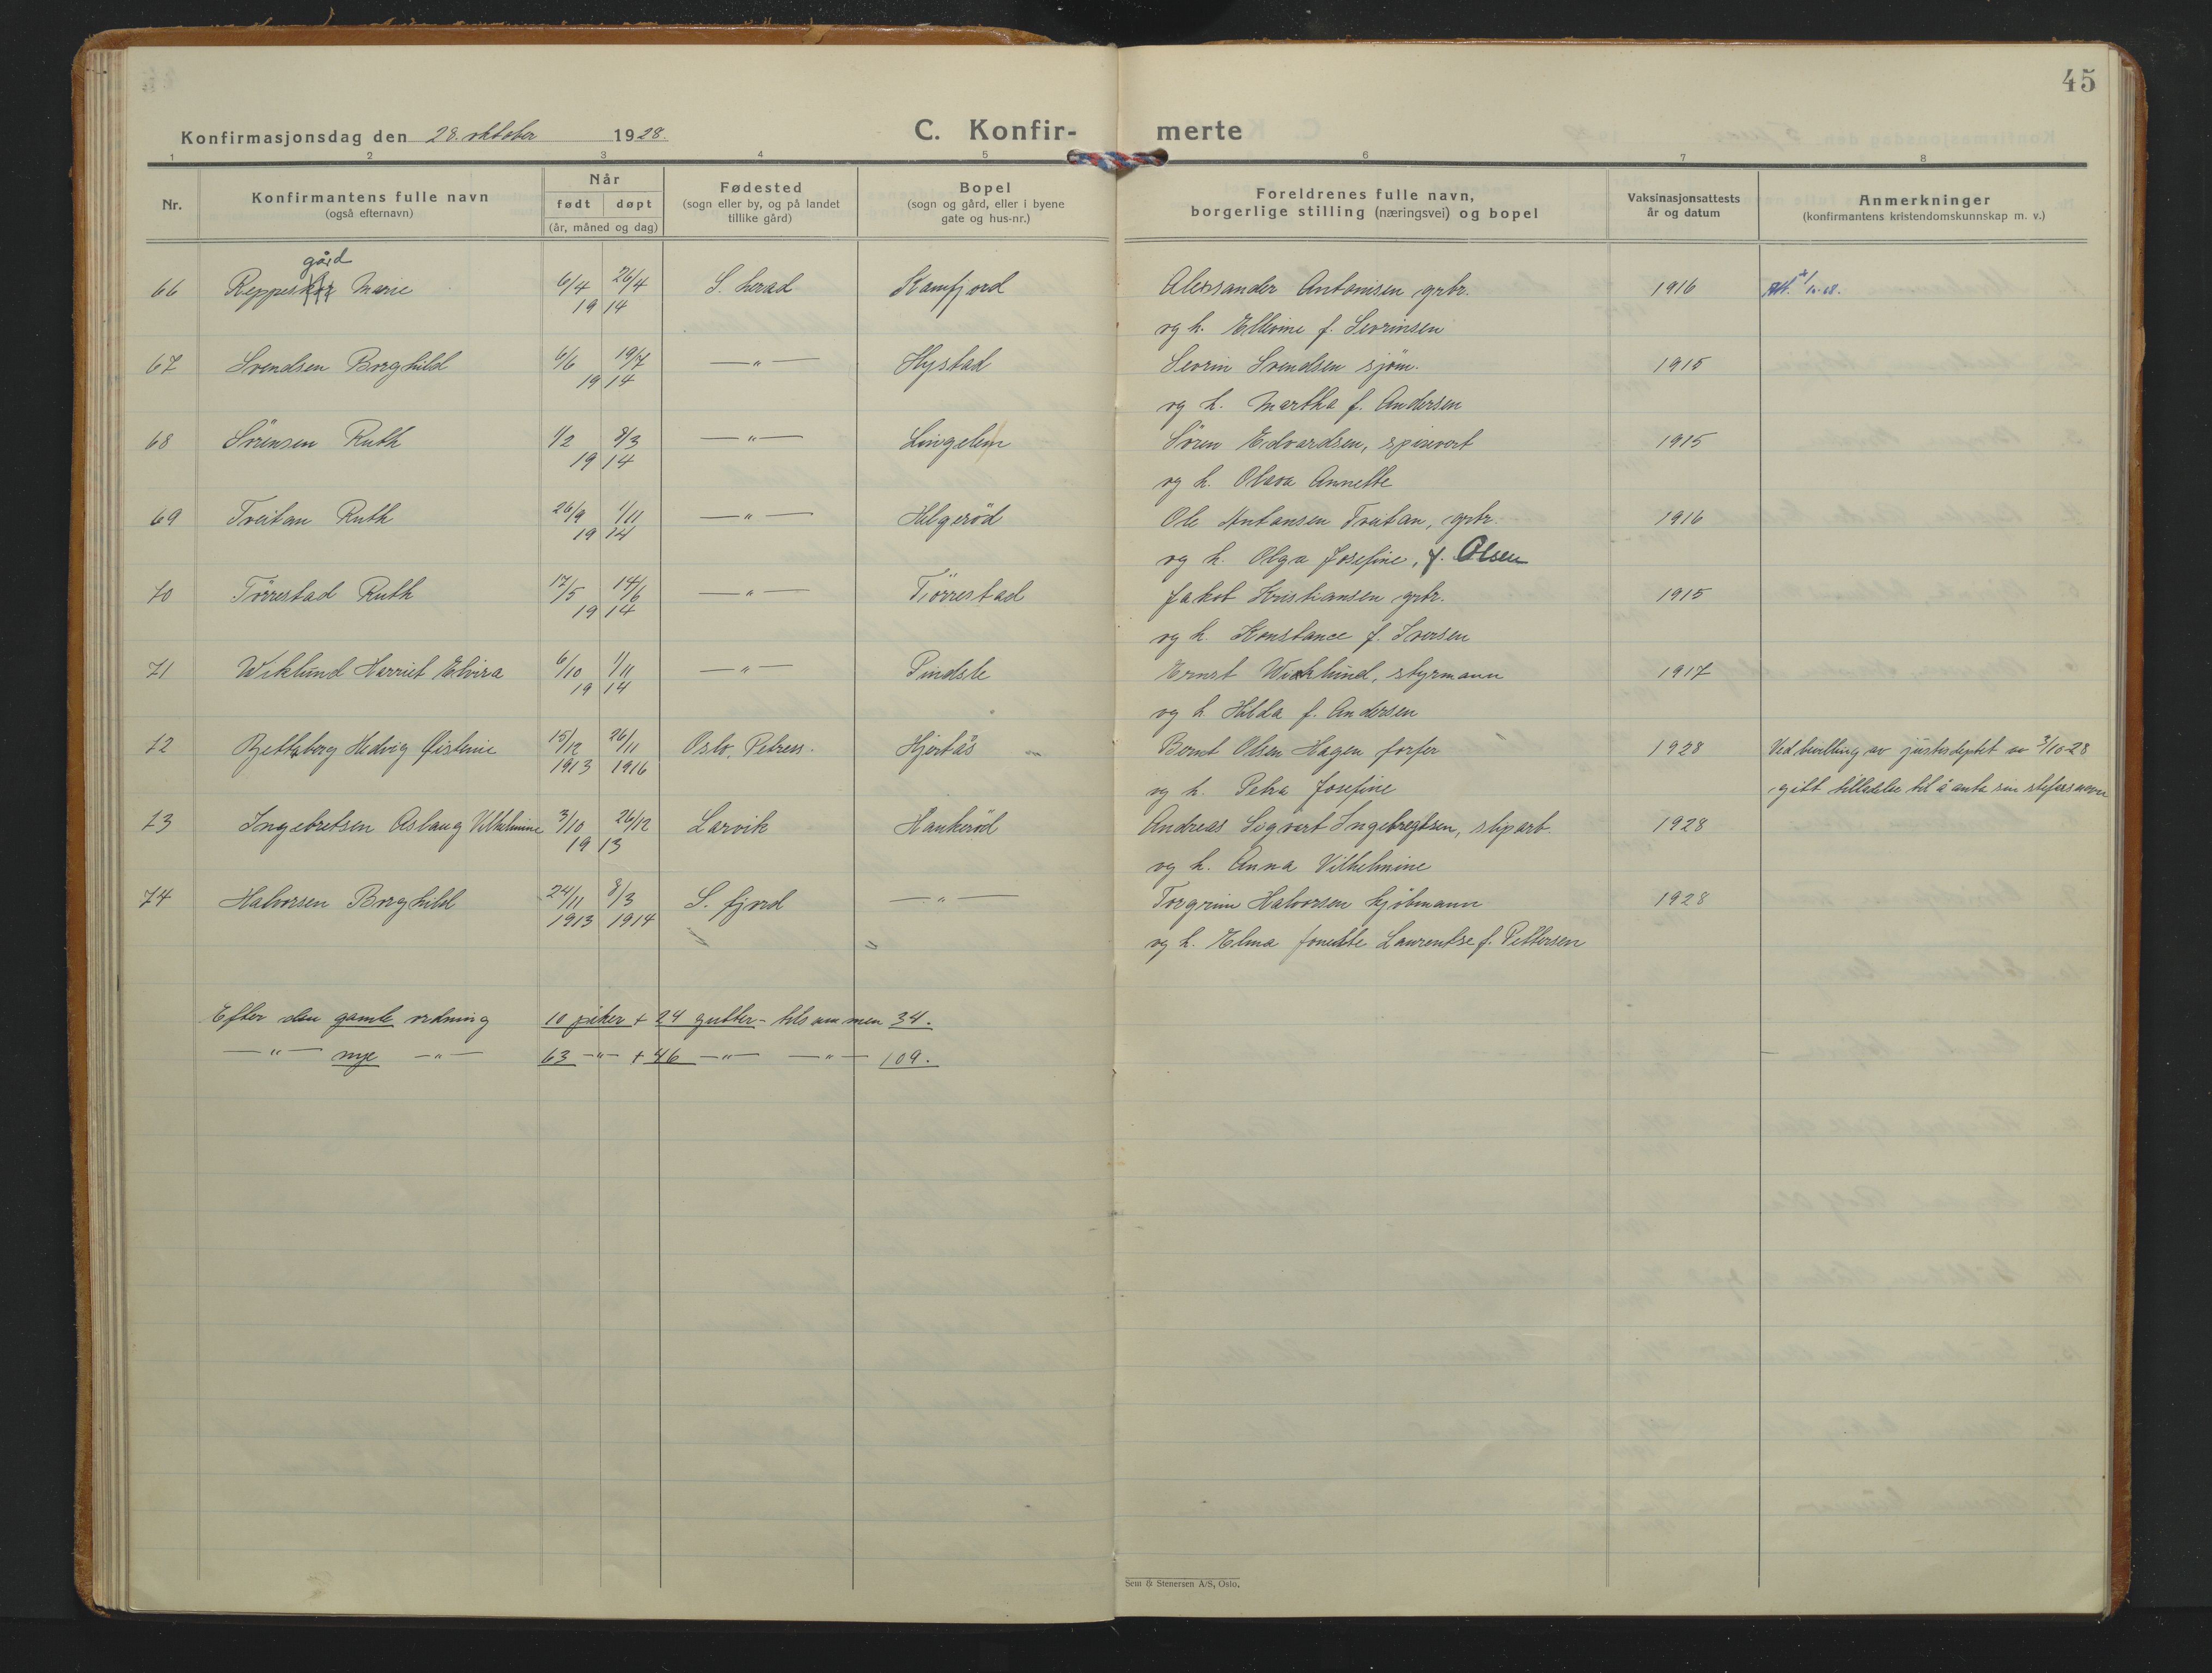 45
Konfirmasjonsdag den 28. oktober 1928.
C. Konfir- merte
1 2 3 4 5 6 7 8
Nr.
Konfirmantens fulle navn
(også efternavn)
Når
født døpt
(år, måned og dag)
Fødested
(sogn eller by, og på landet
tillike gård)
Bopel
(sogn og gård, eller i byene
gate og hus-nr.)
Foreldrenes fulle navn,
borgerlige stilling (næringsvei) og bopel
Vaksinasjonsattests
år og datum
Anmerkninger
(konfirmantens kristendomskunnskap m. v.)
gård
66 Reppes Marie 6/4 26/4 S. herad Kamfjord Aleksander Antonisen grbr. 1916
19 14 og h. Ellevine f. Sevrinsen
67 Svendsen Borghild 6/6 19/7 —"— Hystad Sevrin Svendsen sjöm. 1915
19 14 og h. Martha f. Andersen
68 Sörensen Ruth 1/2 8/3 —"— Lingelem Sören Edvardsen, spisevert 1915
19 14 og h. Olava Annette
69 Treitan Ruth 26/9 1/11 —"— Helgeröd Ole Antonsen Treitan, grbr. 1916
19 14 og h. Olga Josefine, f. Olsen
70 Törrestad Ruth 17/5 14/6 —"— Törrestad Jakob Kristiansen grbr. 1915
19 14 og h. Konstance f. Iversen
71 Wiklund Harriet Elvira 6/10 1/11 —"— Pindsle Ernst Wicklund, styrmann 1917
19 14 og h. Hilda f. Andersen
72 Hedvig Øistinie 15/12 26/11 Oslo, Petrus. Hjertås Bernt Olsen Hagen forfer 1928 Ved bevilling av justisdeptet av 3/10-28
1913 1916 og h. Petra Josefine gitt tilladelse til å anta sin stefars navn
73 Ingebretsen Aslaug Vilhelmine 3/10 26/12 Larvik Haukeröd Andreas Sigvart Ingebregtsen, sliparb. 1928
19 13 og h. Anna Vilhelmine
74 Halvorsen Borghild 24/11 8/3 S. fjord —"— Torgrim Halvorsen kjöbmann 1928
1913 1914 og h. Elma Jonette Laurentse f. Pettersen
Efter den gamle ordning 10 piker + 24 gutter - tilsammen 34.
—"— nye —"— 63 —"— + 46 —"— —"— 109.
Sem & Stenersen A/S, Oslo.